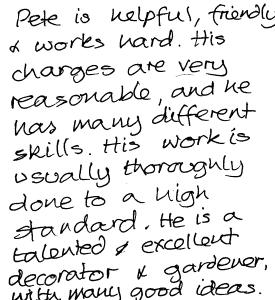 Pete is helpful, friendly
& works hard. His
charges are very
reasonable, and he
has many different
skills. His work is
usually thoroughly
done to a high
standard. He is a
talented & excellent
decorator & gardener,
with many good ideas.